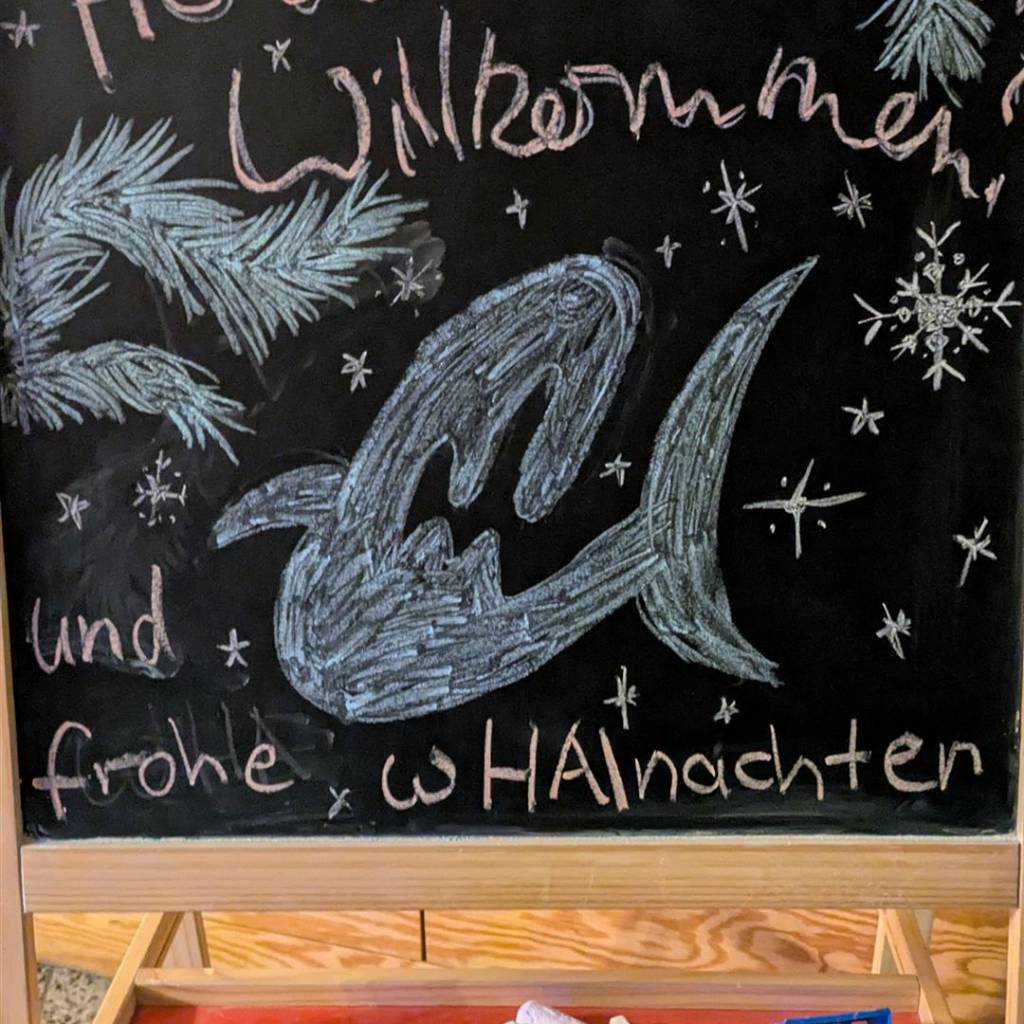 Willkommen,
und
frohe wHAInachten